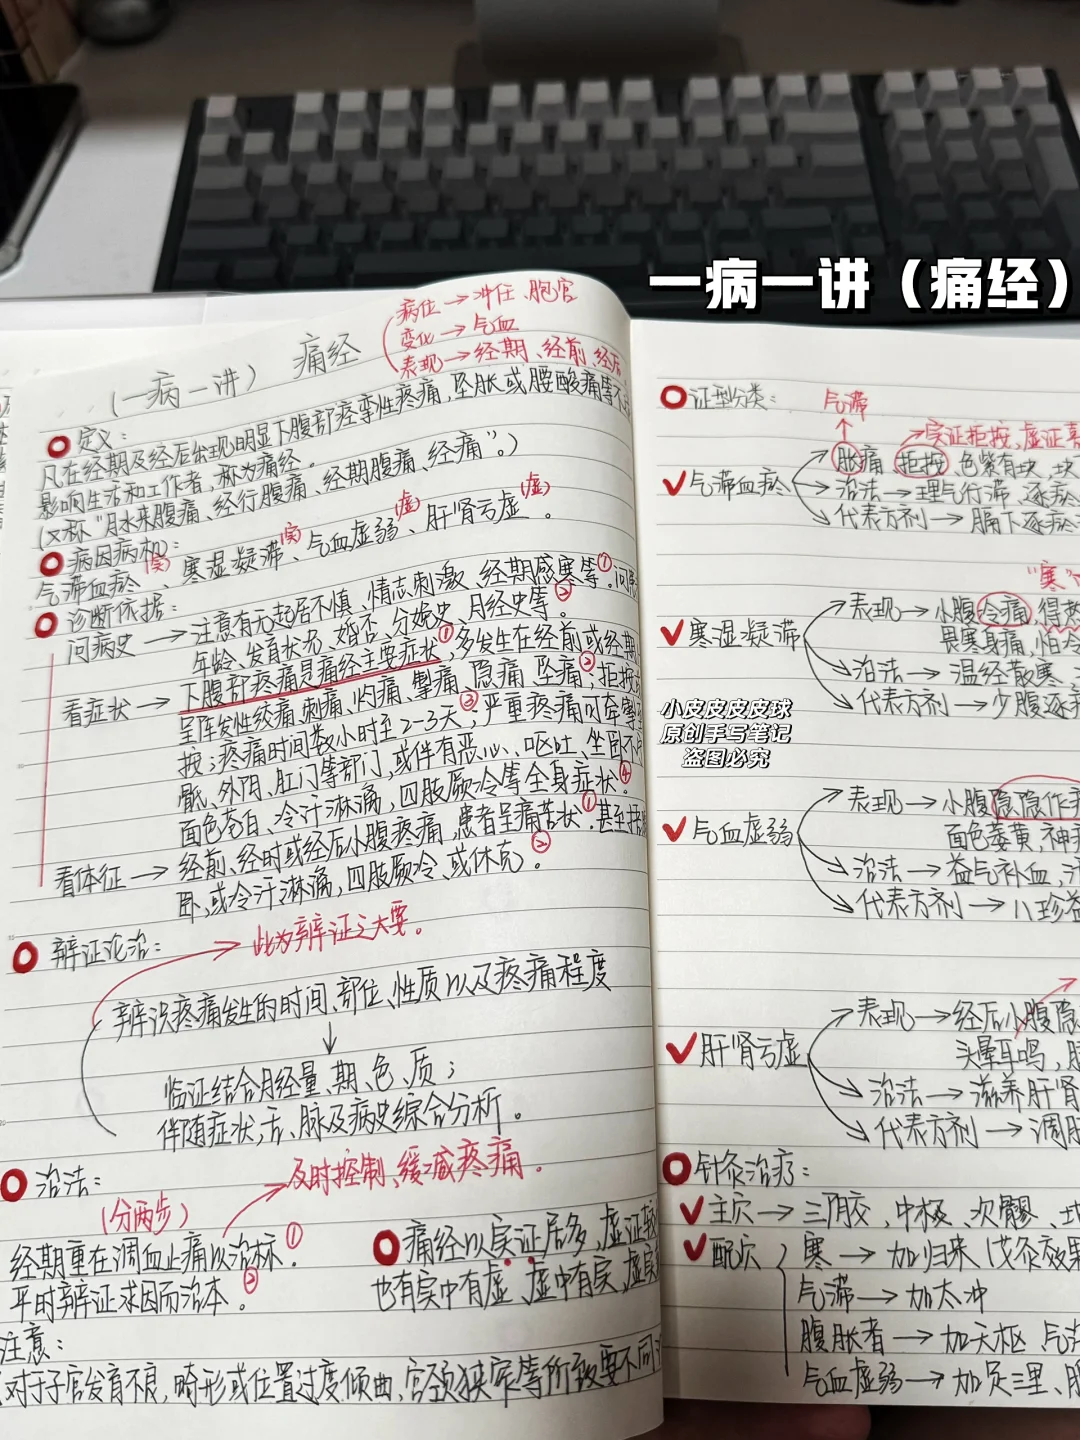 一病一讲（痛经）
（一病一讲） 痛经
病位→冲任、胞宫
变化→气血
表现→经期、经前、经后
定义：
凡在经期及经后出现明显下腹部痉挛性疼痛，坠胀或腰酸痛等不
影响生活和工作者，称为痛经。
(又称"月水来腹痛、经行腹痛、经期腹痛、经痛"。)
病因病机：
气滞血瘀(实)、寒湿凝滞(实)、气血虚弱(虚)、肝肾亏虚(虚)。
诊断依据：
问病史→注意有无起居不慎、情志刺激、经期感寒等①。问
年龄、发育状况、婚否、分娩史、月经史等②。
看症状→下腹部疼痛是痛经主要症状①，多发生在经前或经期
呈阵发性绞痛、刺痛、灼痛、掣痛、隐痛、坠痛②；拒按或
按；疼痛时间数小时至2-3天③；严重疼痛可牵牵
骶、外阴、肛门等部门，或伴有恶心、呕吐、坐卧不
面色苍白、冷汗淋漓，四肢厥冷等全身症状④。
看体征→经前、经时或经后小腹疼痛，患者呈痛苦状①，甚至
卧，或冷汗淋漓，四肢厥冷、或休克②。
辨证论治：
此为辨证之大要。
辨识疼痛发生的时间、部位、性质以及疼痛程度
↓
临证结合月经量、期、色、质；
伴随症状，舌、脉及病史综合分析。
治法：
(分两步)
及时控制、缓减疼痛。
经期重在调血止痛以治标①
平时辨证求因而治本。②
痛经以实证居多，虚证较
也有实中有虚、虚中有实，虚实
注意：
对于子宫发育不良，畸形或位置过度倾曲，宫颈狭窄等所致要不同
证型分类：
气滞
实证拒按，虚证喜
气滞血瘀
胀痛 拒按，色紫有块，块
治法→理气行滞、逐瘀
代表方剂→膈下逐瘀
"寒"
寒湿凝滞
表现→小腹冷痛，得热
畏寒身痛，怕冷
治法→温经散寒、
代表方剂→少腹逐瘀
小皮皮皮皮球
原创手写笔记
盗图必究
气血虚弱
表现→小腹隐隐作
面色萎黄，神
治法→益气补血，
代表方剂→八珍益
肝肾亏虚
表现→经后小腹隐
头晕耳鸣，
治法→滋养肝肾
代表方剂→调肝
针灸治疗：
主穴→三阴交、中极、次髎、
配穴
寒→加归来（艾灸效果
气滞→加太冲
腹胀者→加天枢 气
气血虚弱→加足三里、